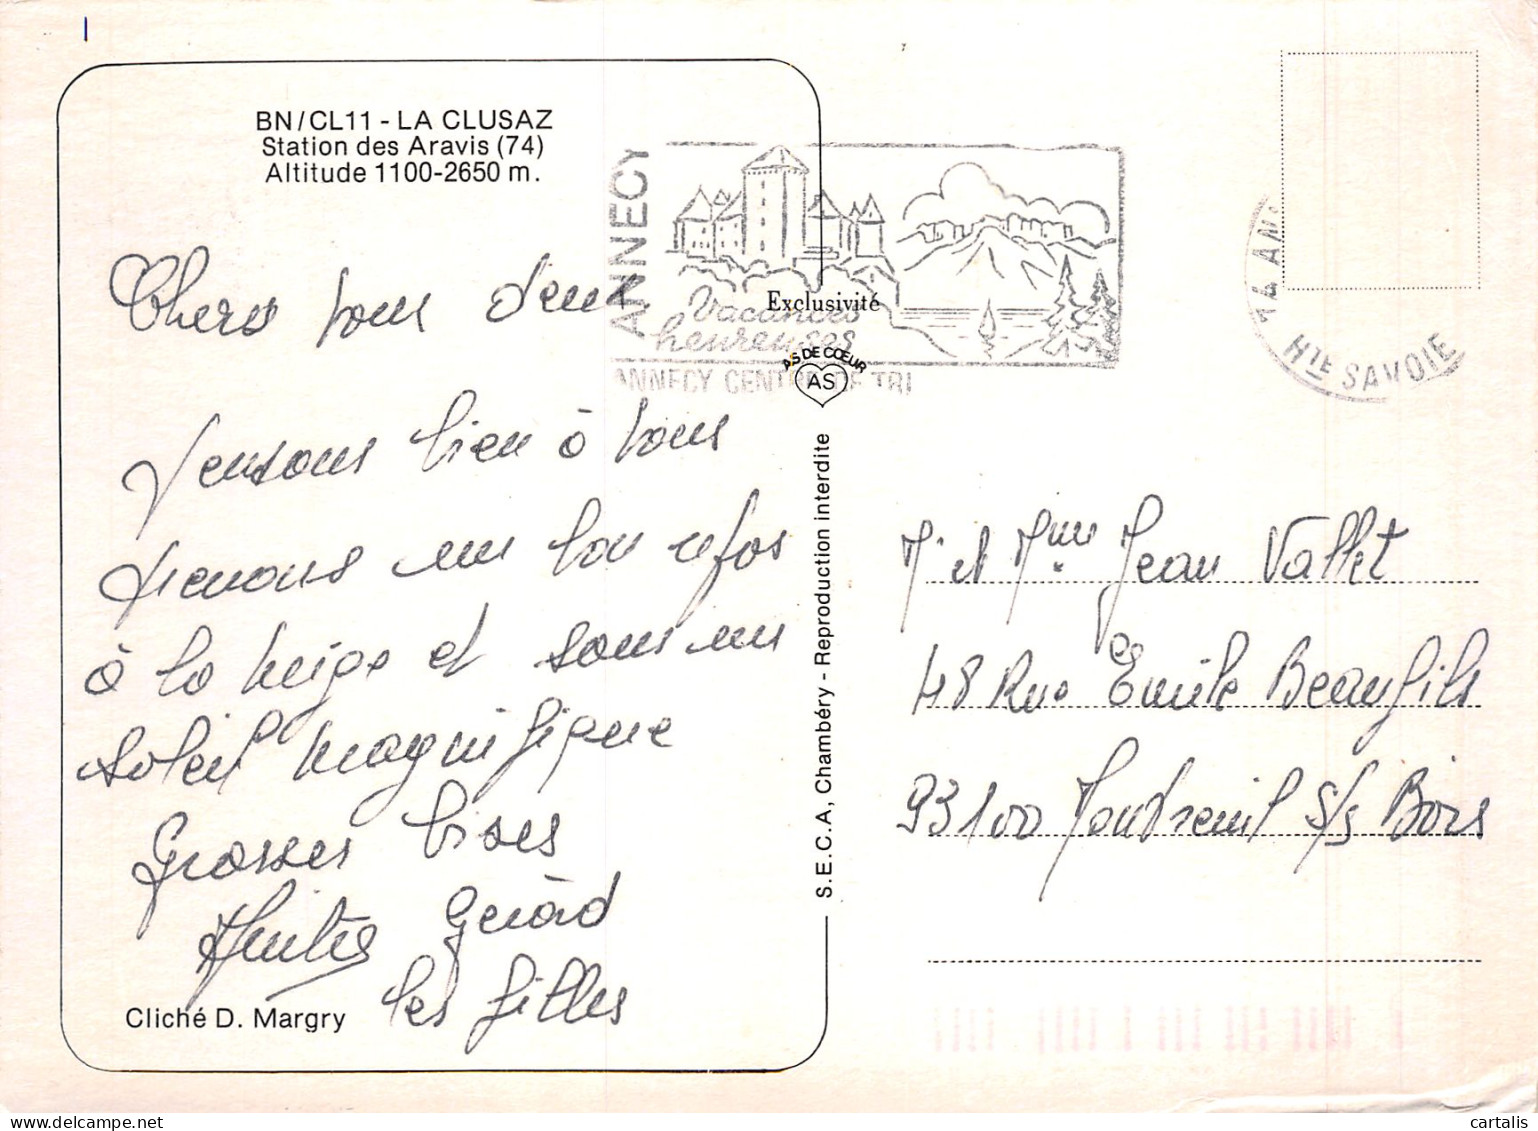 BN/CL11 - LA CLUSAZ
Station des Aravis (74)
Altitude 1100-2650 m.
Chers tous deux
Pensons bien à vous
prenons un bon repos
à la neige et sous un
soleil magnifique
Grosses bises
Gérard
les filles
Cliché D. Margry
ANNECY
Vacances
heureuses
ANNECY CENTRE DE TRI
Exclusivité
AS DE COEUR
AS
S.E.C.A, Chambéry - Reproduction interdite
14 AN
HTE SAVOIE
M et Mme Jean Vallet
48 Rue Emile Beaufils
93100 Montreuil s/s Bois
cartalis